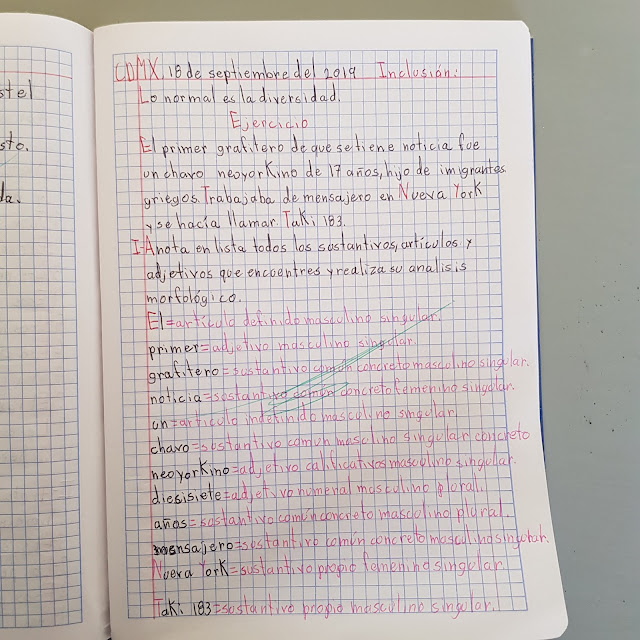 stel
sto.
da.
CDMX 18 de septiembre del 2019 Inclusión:
Lo normal es la diversidad.
Ejercicio
El primer grafitero de que se tiene noticia fue
un chavo neoyorkino de 17 años, hijo de imigrantes
griegos. Trabajaba de mensajero en Nueva York
y se hacía llamar Taki 183.
I-Anota en lista todos los sustantivos, artículos y
adjetivos que encuentres y realiza su analisis
morfológico.
El=artículo definido masculino singular.
primer=adjetivo masculino singular.
grafitero=sustantivo común concreto masculino singular.
noticia=sostantivo común concreto femenino singular.
un=artículo indefinido masculino singular.
chavo=sustantivo común masculino singular concreto
neoyorkino=adjetivo calificativos masculino singular.
diesisiete=adjetivo numeral masculino plural.
años=sustantivo común concreto masculino plural.
mensajero=sustantivo común concreto masculino singular.
Nueva York=sustantivo propio femenino singular.
Taki 183=sustantivo propio masculino singular.